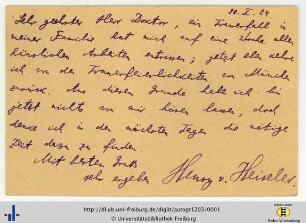 20. X. 24
Sehr geehrter Herr Doctor, ein Trauerfall in
meiner Familie hat mich auf eine Woche allen
häuslichen Arbeiten entrissen; jetzt eben kehre
ich von den Trauerfeierlichkeiten von München
zurück. Aus diesem Grunde habe ich bis
jetzt nichts von mir hören lassen, doch
denke ich in den nächsten Tagen die nötige
Zeit dazu zu finden.
Mit besten Gruß
sehr ergeben Henry v. Heiseler.
http://dl.ub.uni-freiburg.de/diglit/autogr1203/0001
© Universitätsbibliothek Freiburg
Baden-Württemberg